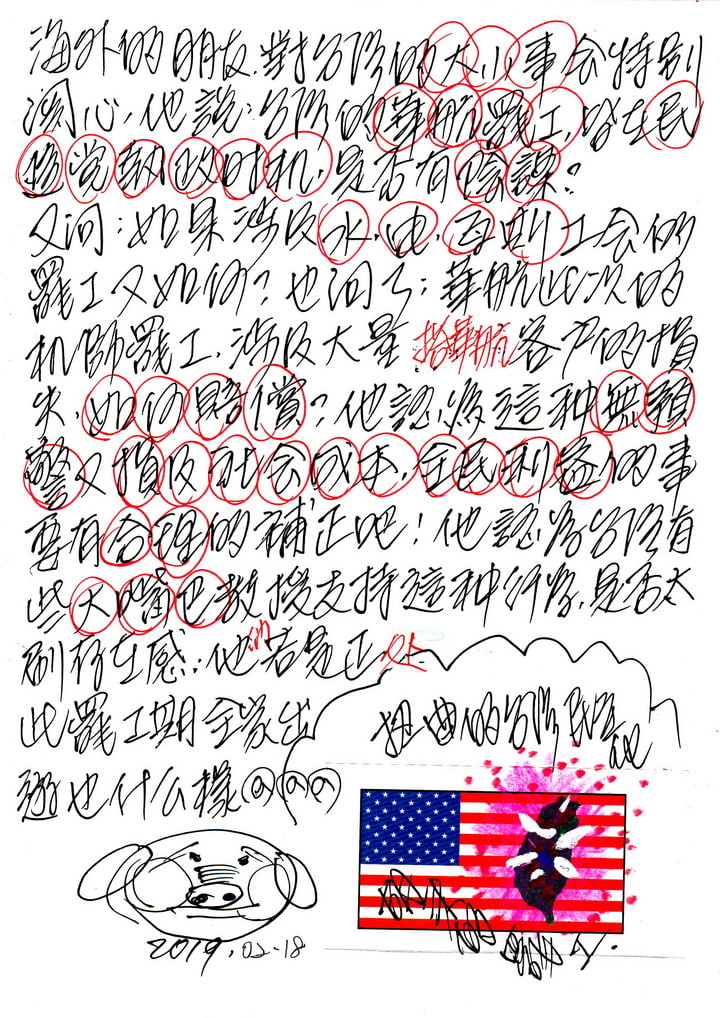 海外的朋友.對台灣的大小事会特别
関心,他說:台灣的華航罷工,皆在民
進党執政时机,是否有陰謀?
又问:如果涉及水.电.瓦斯工会的
罷工又如何?也问了:華航此次的
机師罷工,涉及大量搭華航客户的損
失,如何賠償?他認為這种無預
警又損及社会成本,全民利益的事
要有合理的補正吧!他認為台湾有
些大嘴巴教授支持這种行為,是否太
刷存在感:他们若是正处
此罷工期全家出
遊也什么樣@@@
扭曲的台灣民主
2019.02-18